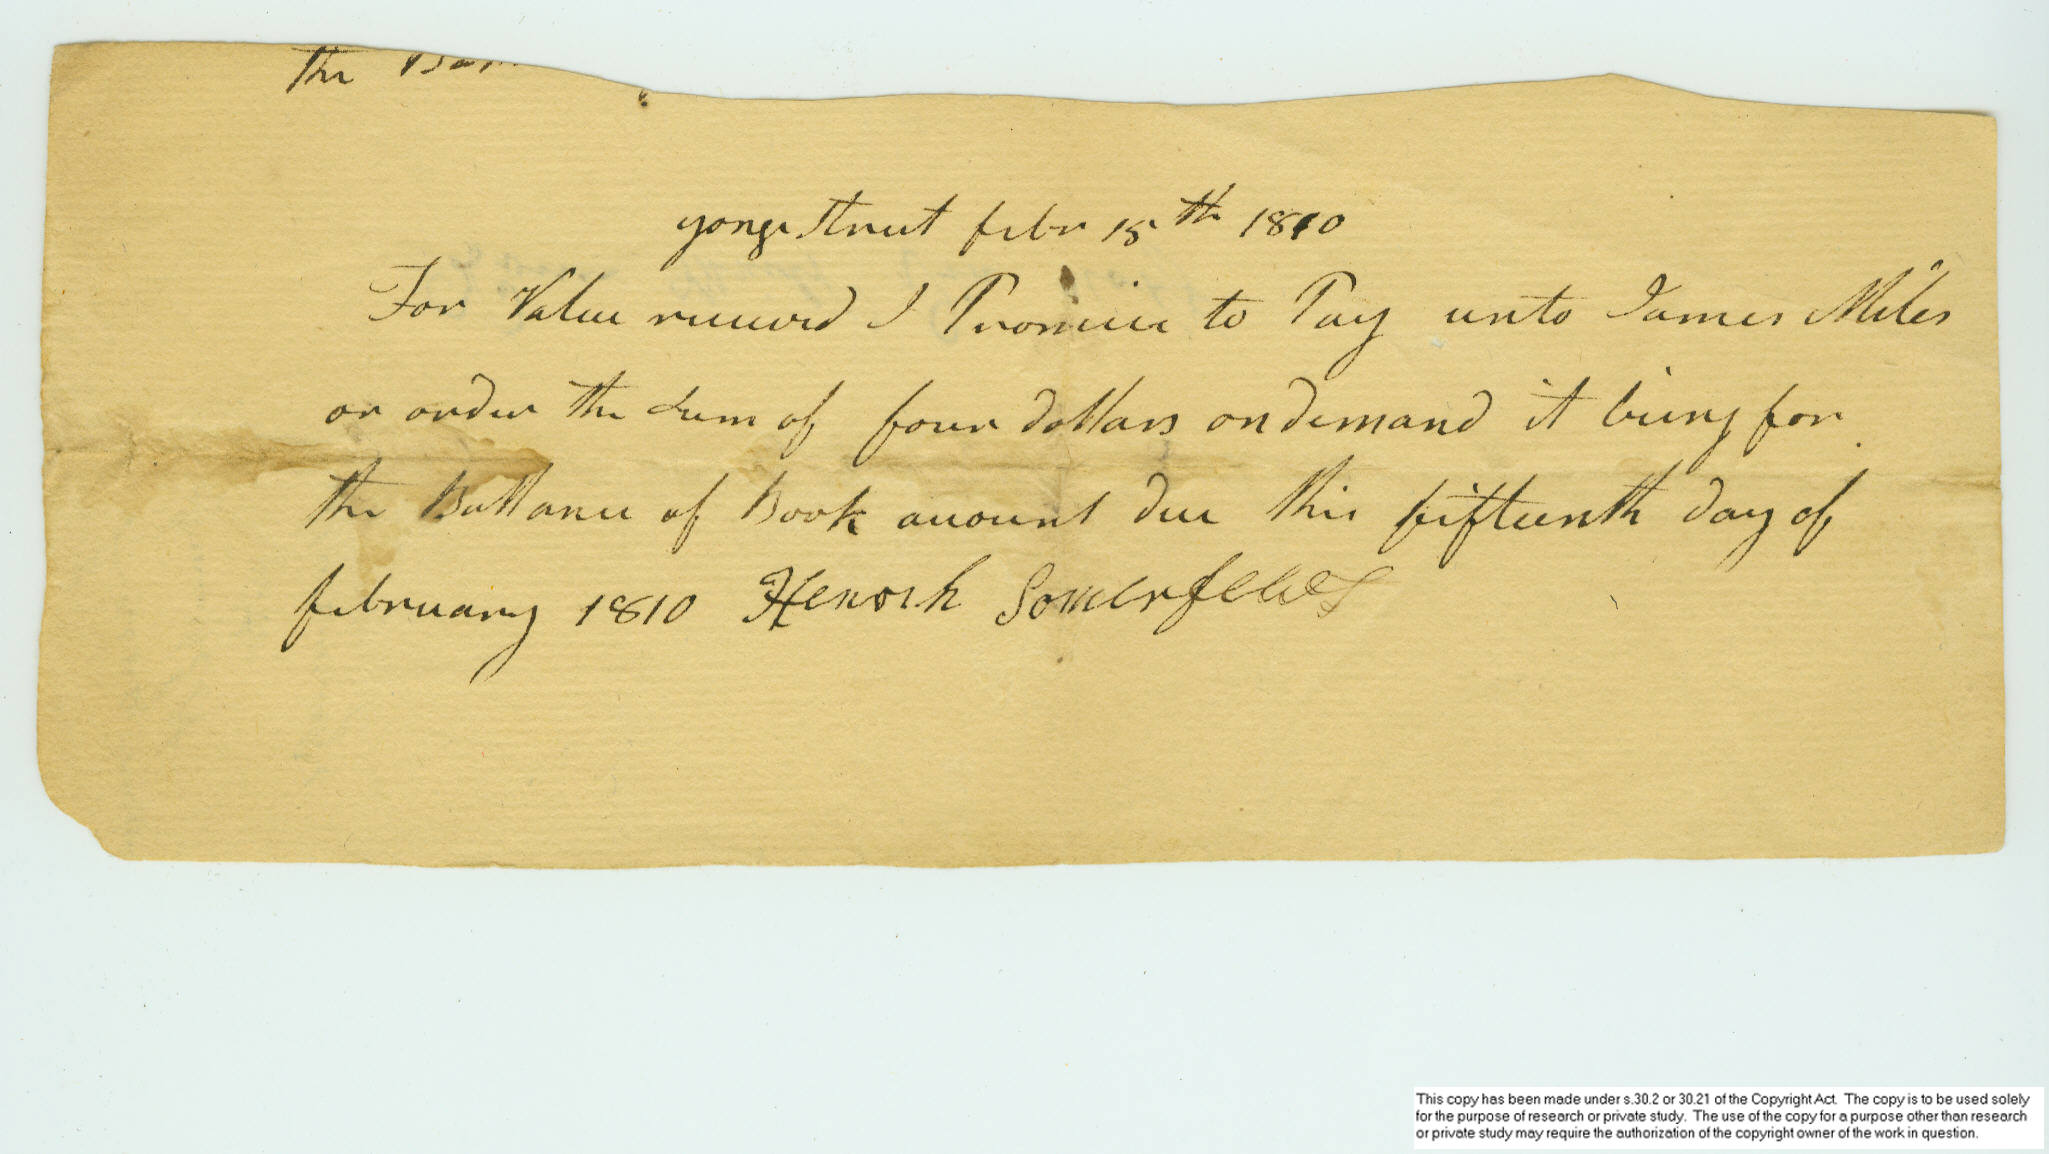 the
yonge Street febr 15th 1810
For Value received I Promise to Pay unto James Miles
or order the Sum of four dollars on demand it being for
the Ballance of Book account due this fifteenth day of
february 1810 Henorh Somerfeldt
This copy has been made under s.30.2 or 30.21 of the Copyright Act. The copy is to be used solely
for the purpose of research or private study. The use of the copy for a purpose other than research
or private study may require the authorization of the copyright owner of the work in question.